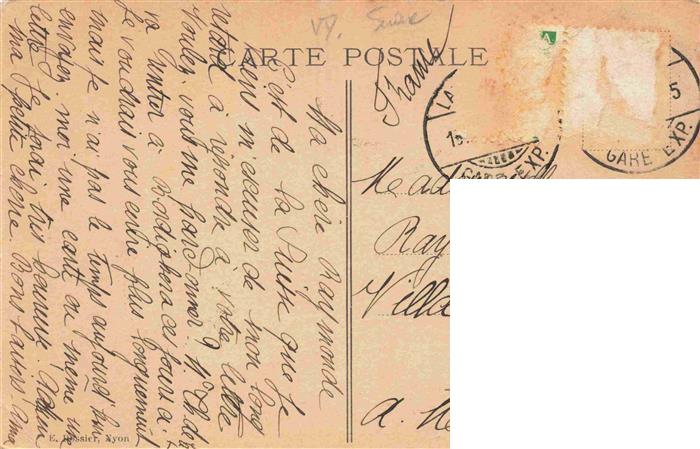 Suisse
CARTE POSTALE
France
GARE EXP.
GARE EXP.
5
Ma chère Raymonde
C'est de la Suisse que je
viens m'excuser de mon long
retard à répondre à votre lettre
Voulez vous me pardonner?
va rentrer à ces jours ci.
Je voudrais vous écrire plus longuement
mais je n'ai pas le temps aujourd'hui
envoyez moi une carte ou même une
lettre Je serai très heureuse
ma petite chérie Bons baisers
Ray
Villa
E. Rossier, Nyon